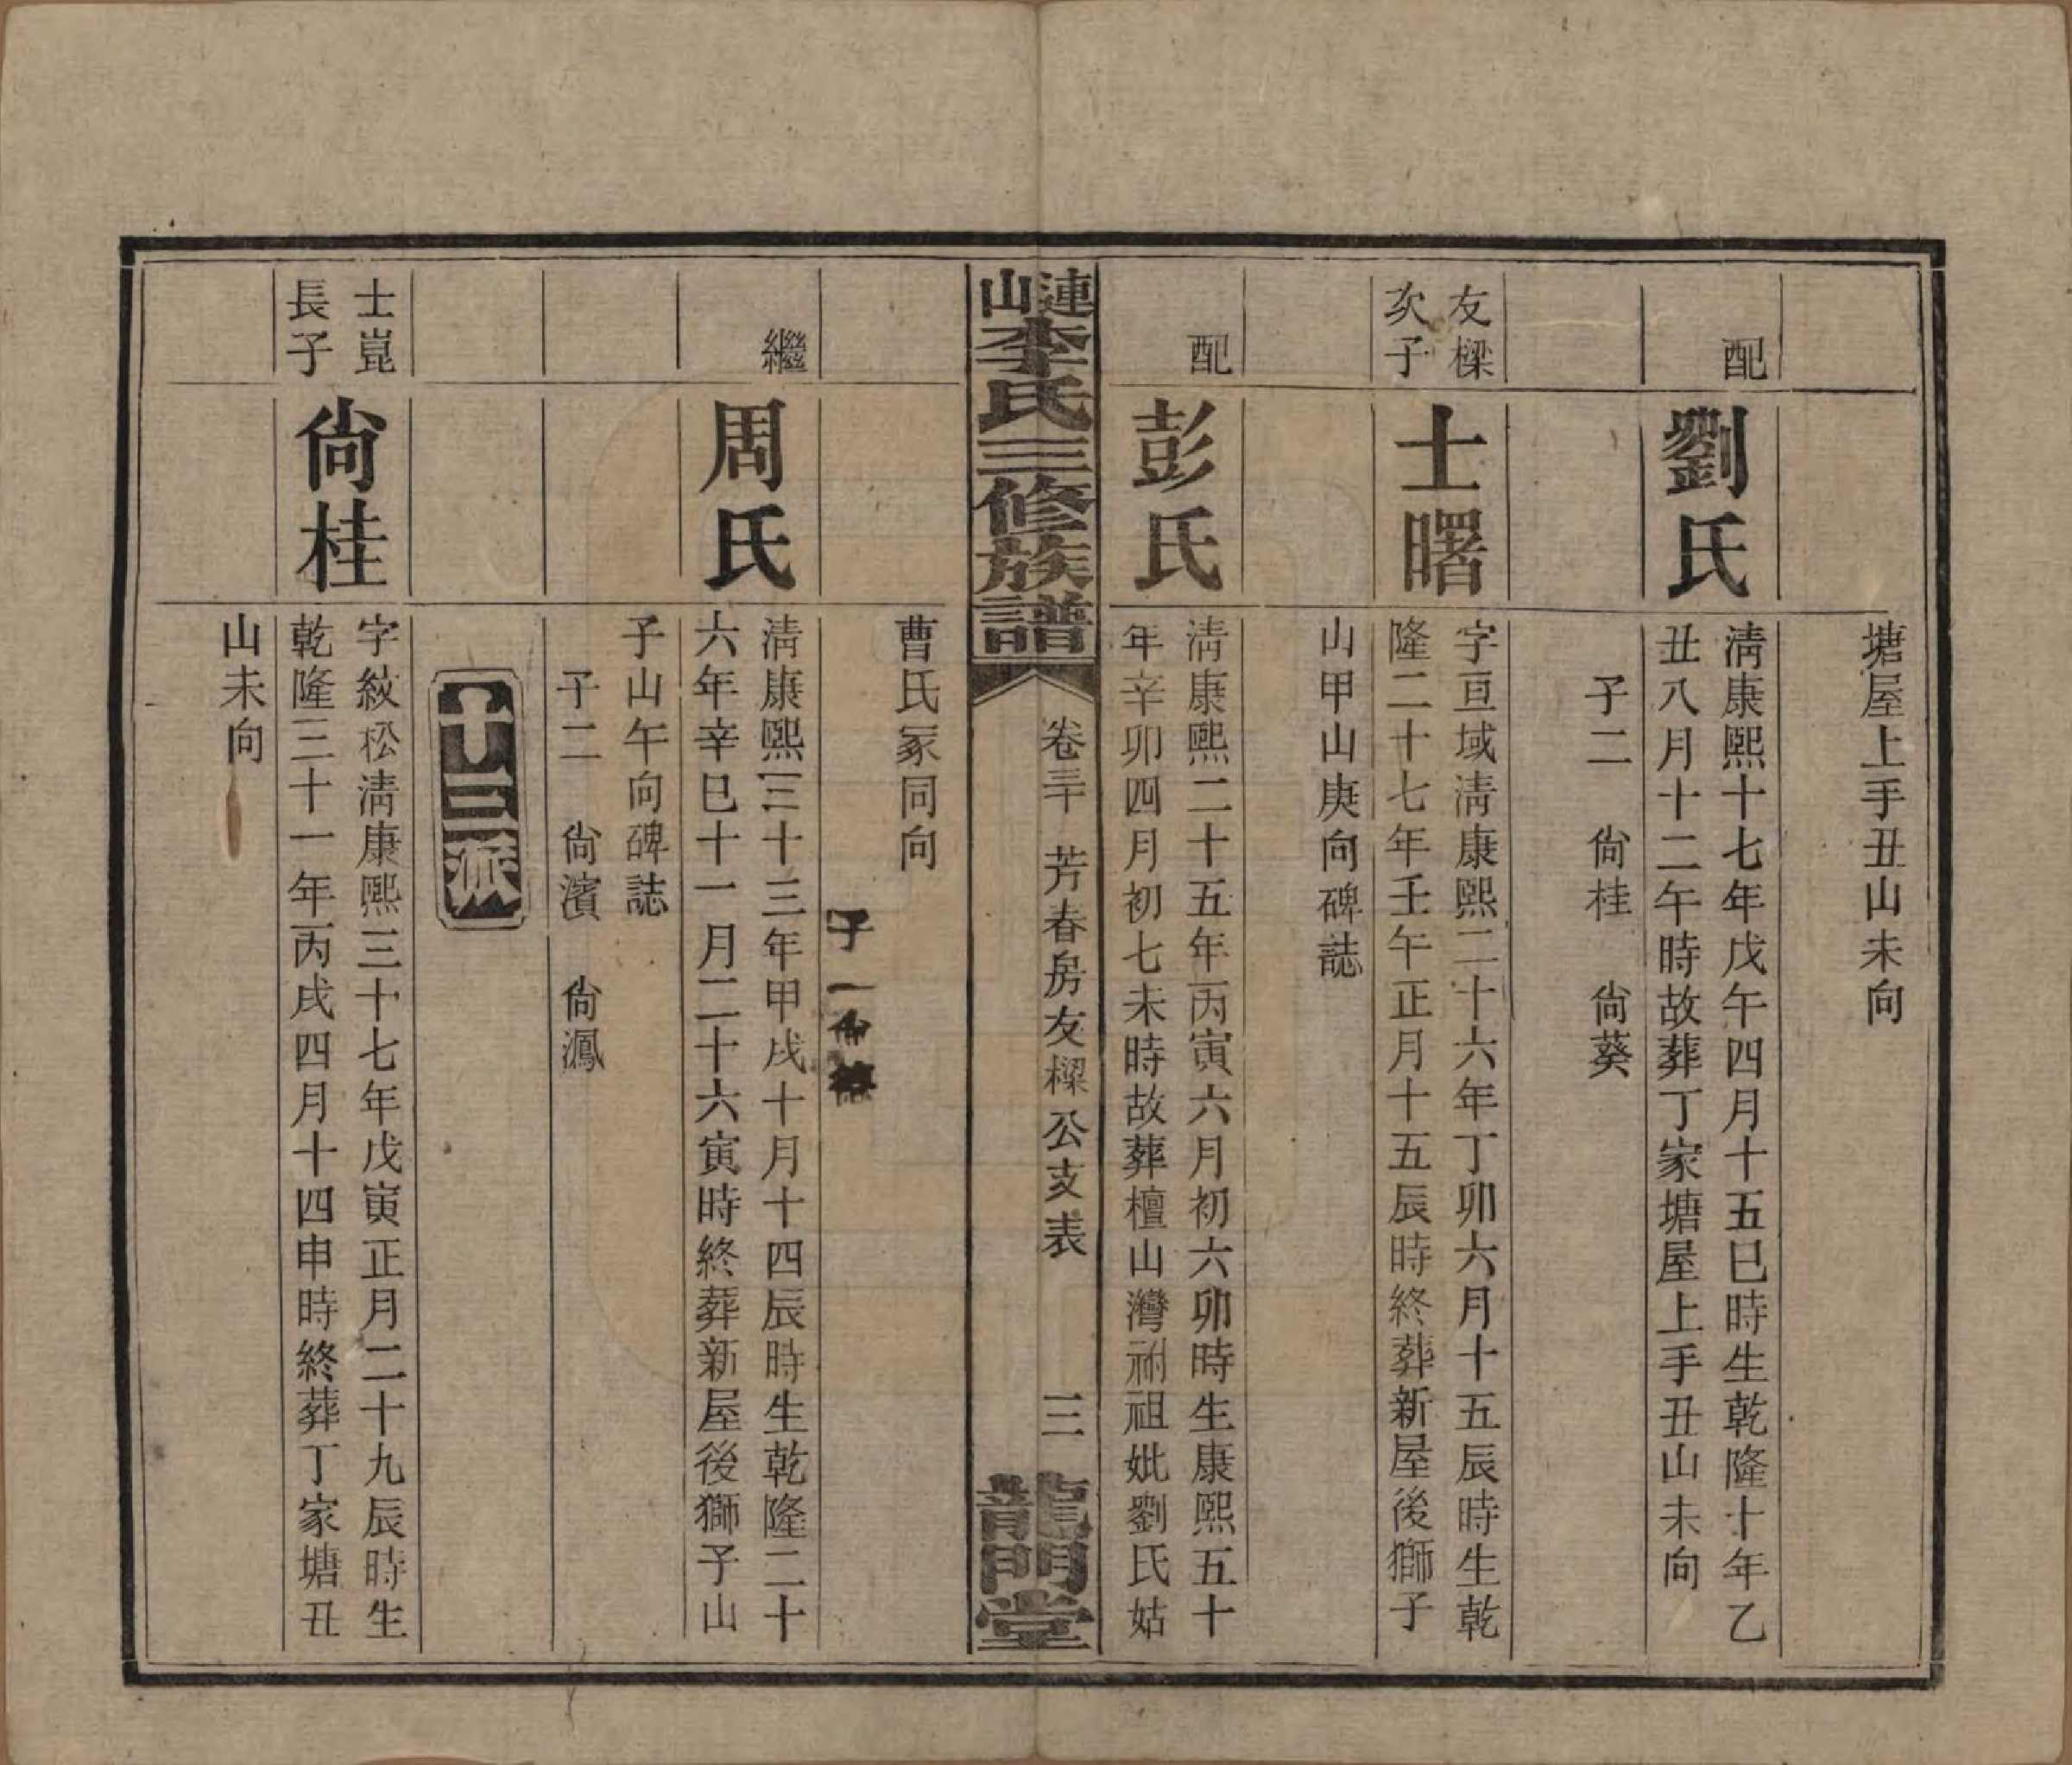 塘屋上手丑山未向
配
劉氏
淸康熙十七年戊午四月十五巳時生乾隆十年乙
丑八月十二午時故葬丁家塘屋上手丑山未向
子二　尙桂　尙葵
友樑
次子
士曙
字亘域淸康熙二十六年丁卯六月十五辰時生乾
隆二十七年壬午正月十五辰時終葬新屋後獅子
山甲山庚向碑誌
配
彭氏
淸康熙二十五年丙寅六月初六卯時生康熙五十
年辛卯四月初七未時故葬檀山灣祔祖妣劉氏姑
漣山李氏三修族譜
卷三十　芳春房友樑公支表
三
龍門堂
曹氏冢同向
子一尙
繼
周氏
淸康熙三十三年甲戌十月十四辰時生乾隆二十
六年辛巳十一月二十六寅時終葬新屋後獅子山
子山午向碑誌
子二　尙濱　尙鳳
十三派
士崑
長子
尙桂
字紋松淸康熙三十七年戊寅正月二十九辰時生
乾隆三十一年丙戌四月十四申時終葬丁家塘丑
山未向